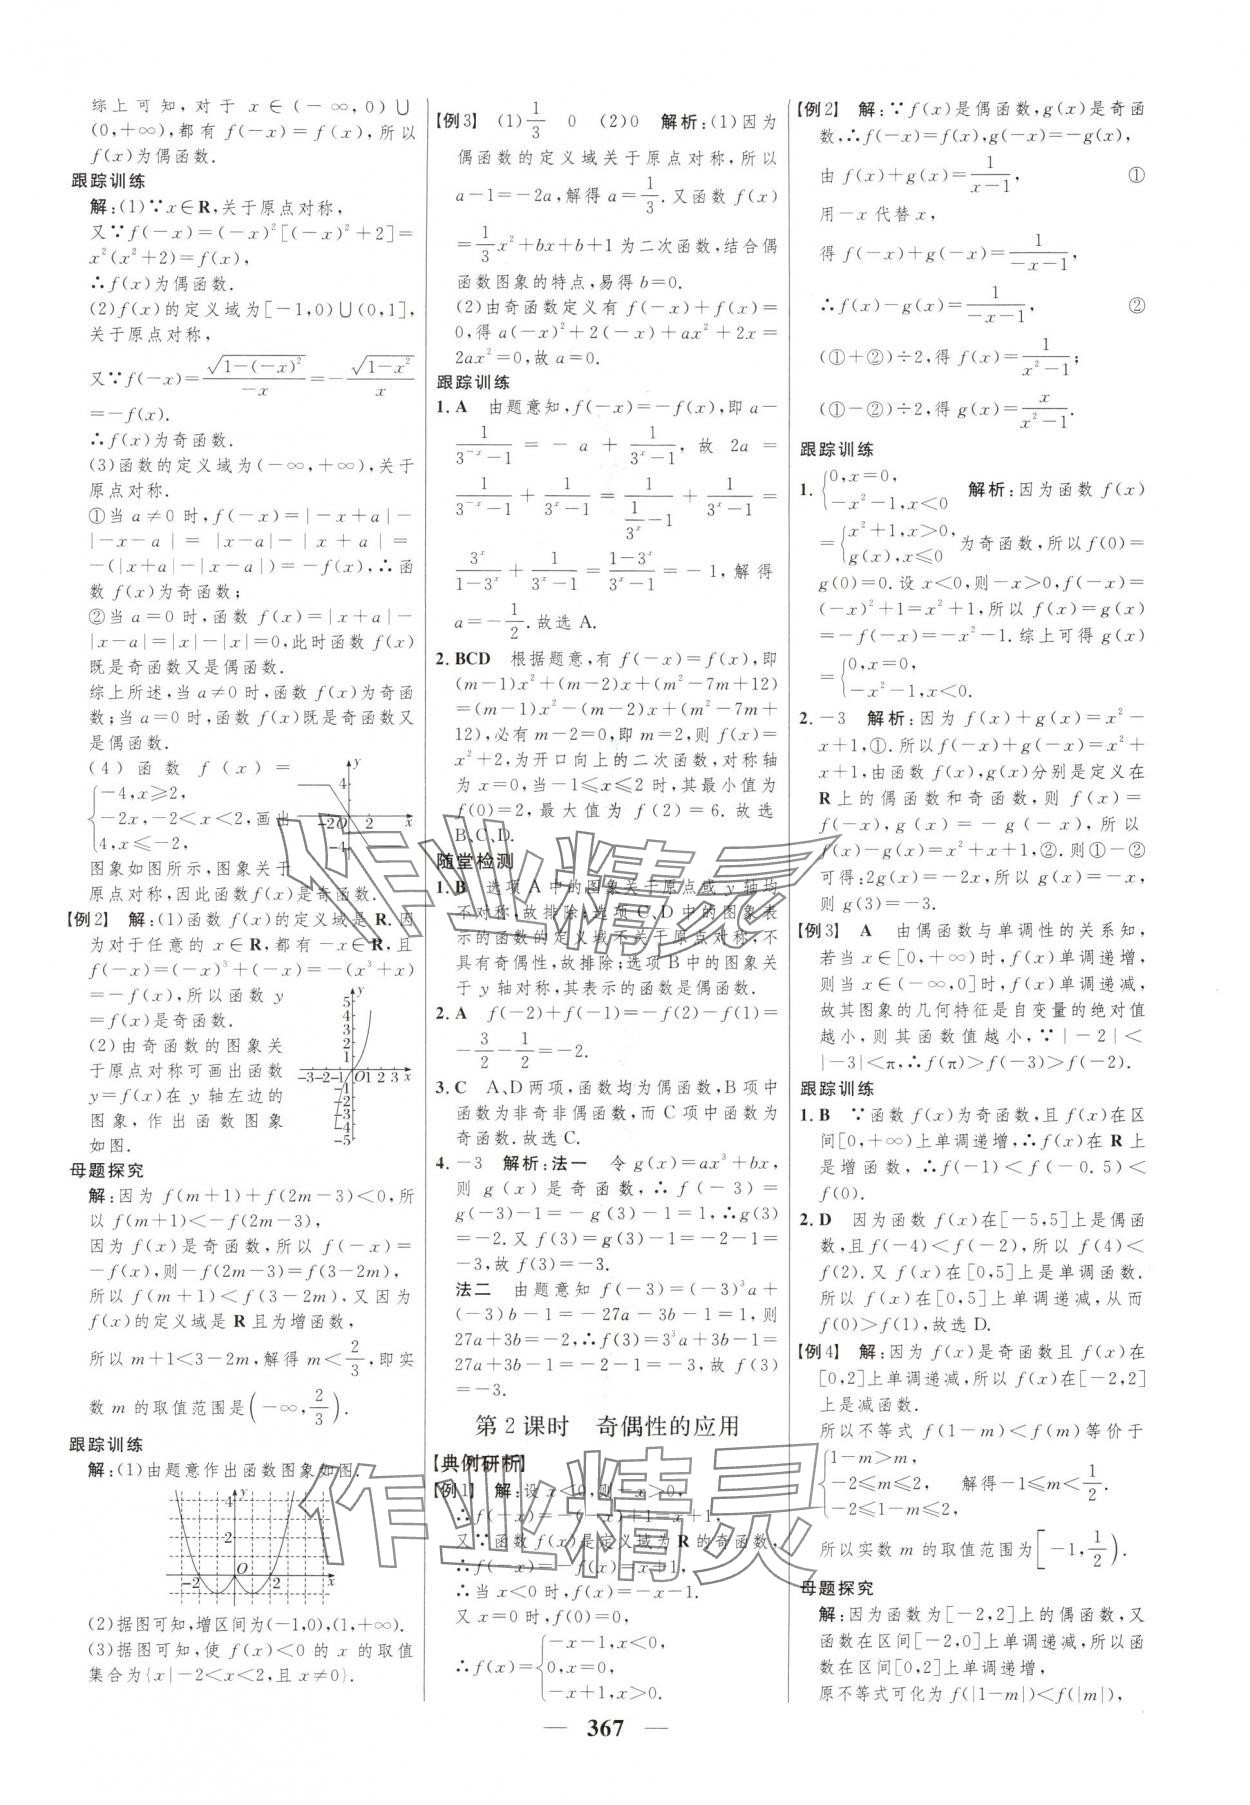 综上可知,对于 x∈(-∞,0)∪
(0,+∞),都有 f(-x)=f(x),所以
f(x)为偶函数.
跟踪训练
解:(1)∵x∈R,关于原点对称,
又∵f(-x)=(-x)²[(-x)²+2]=
x²(x²+2)=f(x),
∴f(x)为偶函数.
(2)f(x)的定义域为[-1,0)∪(0,1],
关于原点对称,
又∵f(-x)=√(1-(-x)²)/(-x)=-√(1-x²)/x
=-f(x).
∴f(x)为奇函数.
(3)函数的定义域为(-∞,+∞),关于
原点对称.
①当 a≠0 时,f(-x)=|-x+a|-
|-x-a|=|x-a|-|x+a|=
-(|x+a|-|x-a|)=-f(x),∴函
数 f(x)为奇函数;
②当 a=0 时,函数 f(x)=|x+a|-
|x-a|=|x|-|x|=0,此时函数 f(x)
既是奇函数又是偶函数.
综上所述,当 a≠0 时,函数 f(x)为奇函
数;当 a=0 时,函数 f(x)既是奇函数又
是偶函数.
(4)函数 f(x)=
{-4,x≥2,
-2x,-2<x<2,画出
4,x≤-2,
图象如图所示,图象关于
原点对称,因此函数 f(x)是奇函数.
y
4
-2 O 2 x
-4
【例2】 解:(1)函数 f(x)的定义域是 R.因
为对于任意的 x∈R,都有-x∈R,且
f(-x)=(-x)³+(-x)=-(x³+x)
=-f(x),所以函数 y
=f(x)是奇函数.
(2)由奇函数的图象关
于原点对称可画出函数
y=f(x)在 y 轴左边的
图象,作出函数图象
如图.
y
5
4
3
2
1
-3-2-1 O 1 2 3 x
-1
-2
-3
-4
-5
母题探究
解:因为 f(m+1)+f(2m-3)<0,所
以 f(m+1)<-f(2m-3),
因为 f(x)是奇函数,所以 f(-x)=
-f(x),则-f(2m-3)=f(3-2m),
所以 f(m+1)<f(3-2m),又因为
f(x)的定义域是 R 且为增函数,
所以 m+1<3-2m,解得 m<2/3,即实
数 m 的取值范围是(-∞,2/3).
跟踪训练
解:(1)由题意作出函数图象如图.
y
4
2
-2 O 2 x
(2)据图可知,增区间为(-1,0),(1,+∞).
(3)据图可知,使 f(x)<0 的 x 的取值
集合为{x|-2<x<2,且 x≠0}.
【例3】 (1)1/3 0 (2)0 解析:(1)因为
偶函数的定义域关于原点对称,所以
a-1=-2a,解得 a=1/3.又函数 f(x)
=1/3x²+bx+b+1 为二次函数,结合偶
函数图象的特点,易得 b=0.
(2)由奇函数定义有 f(-x)+f(x)=
0,得 a(-x)²+2(-x)+ax²+2x=
2ax²=0,故 a=0.
跟踪训练
1. A 由题意知,f(-x)=-f(x),即 a-
1/(3⁻ˣ-1)=-a+1/(3ˣ-1),故 2a=
1/(3⁻ˣ-1)+1/(3ˣ-1)=1/(1/3ˣ-1)+1/(3ˣ-1)=
3ˣ/(1-3ˣ)+1/(3ˣ-1)=(1-3ˣ)/(3ˣ-1)=-1,解得
a=-1/2.故选 A.
2. BCD 根据题意,有 f(-x)=f(x),即
(m-1)x²+(m-2)x+(m²-7m+12)
=(m-1)x²-(m-2)x+(m²-7m+
12),必有 m-2=0,即 m=2,则 f(x)=
x²+2,为开口向上的二次函数,对称轴
为 x=0,当-1≤x≤2 时,其最小值为
f(0)=2,最大值为 f(2)=6.故选
B、C、D.
随堂检测
1. B 选项 A 中的图象关于原点或 y 轴均
不对称,故排除;选项 C、D 中的图象表
示的函数的定义域不关于原点对称,不
具有奇偶性,故排除;选项 B 中的图象关
于 y 轴对称,其表示的函数是偶函数.
2. A f(-2)+f(-1)=-f(2)-f(1)=
-3/2-1/2=-2.
3. C A、D 两项,函数均为偶函数,B 项中
函数为非奇非偶函数,而 C 项中函数为
奇函数.故选 C.
4. -3 解析:法一 令 g(x)=ax³+bx,
则 g(x)是奇函数,∴f(-3)=
g(-3)-1=-g(3)-1=1,∴g(3)
=-2.又 f(3)=g(3)-1=-2-1=
-3,故 f(3)=-3.
法二 由题意知 f(-3)=(-3)³a+
(-3)b-1=-27a-3b-1=1,则
27a+3b=-2,∴f(3)=3³a+3b-1=
27a+3b-1=-2-1=-3,故 f(3)
=-3.
第 2 课时 奇偶性的应用
【典例研析】
【例1】 解:设 x<0,则-x>0,
∴f(-x)=-(-x)+1=x+1,
又∵函数 f(x)是定义域为 R 的奇函数,
∴f(-x)=-f(x)=x+1,
∴当 x<0 时,f(x)=-x-1.
又 x=0 时,f(0)=0,
∴f(x)={-x-1,x<0,
0,x=0,
-x+1,x>0.
【例2】 解:∵f(x)是偶函数,g(x)是奇函
数,∴f(-x)=f(x),g(-x)=-g(x),
由 f(x)+g(x)=1/(x-1), ①
用-x 代替 x,
得 f(-x)+g(-x)=1/(-x-1),
∴f(x)-g(x)=1/(-x-1), ②
(①+②)÷2,得 f(x)=1/(x²-1);
(①-②)÷2,得 g(x)=x/(x²-1).
跟踪训练
1. {0,x=0,
-x²-1,x<0 解析:因为函数 f(x)
={x²+1,x>0,
g(x),x≤0 为奇函数,所以 f(0)=
g(0)=0.设 x<0,则-x>0,f(-x)=
(-x)²+1=x²+1,所以 f(x)=g(x)
=-f(-x)=-x²-1.综上可得 g(x)
={0,x=0,
-x²-1,x<0.
2. -3 解析:因为 f(x)+g(x)=x²-
x+1,①.所以 f(-x)+g(-x)=x²+
x+1,由函数 f(x),g(x)分别是定义在
R 上的偶函数和奇函数,则 f(x)=
f(-x),g(x)=-g(-x),所以
f(x)-g(x)=x²+x+1,②.则①-②
可得:2g(x)=-2x,所以 g(x)=-x,
则 g(3)=-3.
【例3】 A 由偶函数与单调性的关系知,
若当 x∈[0,+∞)时,f(x)单调递增,
则当 x∈(-∞,0]时,f(x)单调递减,
故其图象的几何特征是自变量的绝对值
越小,则其函数值越小,∵|-2|<
|-3|<π,∴f(π)>f(-3)>f(-2).
跟踪训练
1. B ∵函数 f(x)为奇函数,且 f(x)在区
间[0,+∞)上单调递增,∴f(x)在 R 上
是增函数,∴f(-1)<f(-0.5)<
f(0).
2. D 因为函数 f(x)在[-5,5]上是偶函
数,且 f(-4)<f(-2),所以 f(4)<
f(2).又 f(x)在[0,5]上是单调函数.
所以 f(x)在[0,5]上单调递减,从而
f(0)>f(1),故选 D.
【例4】 解:因为 f(x)是奇函数且 f(x)在
[0,2]上单调递减,所以 f(x)在[-2,2]
上是减函数.
所以不等式 f(1-m)<f(m)等价于
{1-m>m,
-2≤m≤2, 解得-1≤m<1/2.
-2≤1-m≤2,
所以实数 m 的取值范围为[-1,1/2).
母题探究
解:因为函数为[-2,2]上的偶函数,又
函数在区间[-2,0]上单调递减,所以函
数在区间[0,2]上单调递增,
原不等式可化为 f(|1-m|)<f(|m|),
367
作业精灵
作业精灵